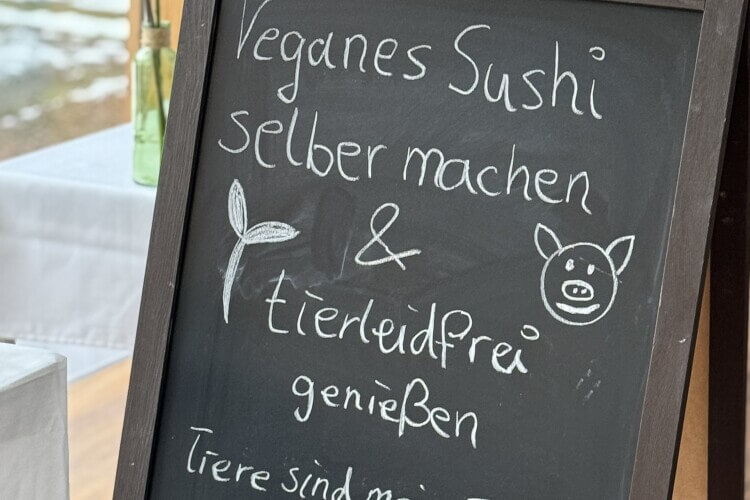 Veganes Sushi
selber machen
&
tierleidfrei
genießen
Tiere sind